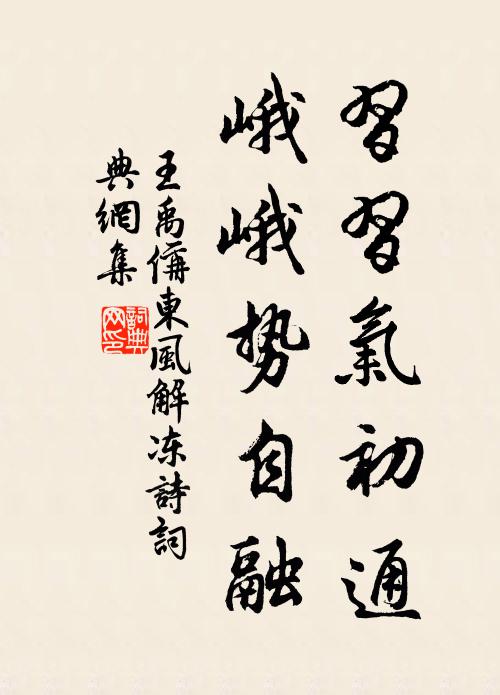 習習氣初通
峨峨勢自融
王禹偁東風解冻詩詞
典網集
詞典
网印